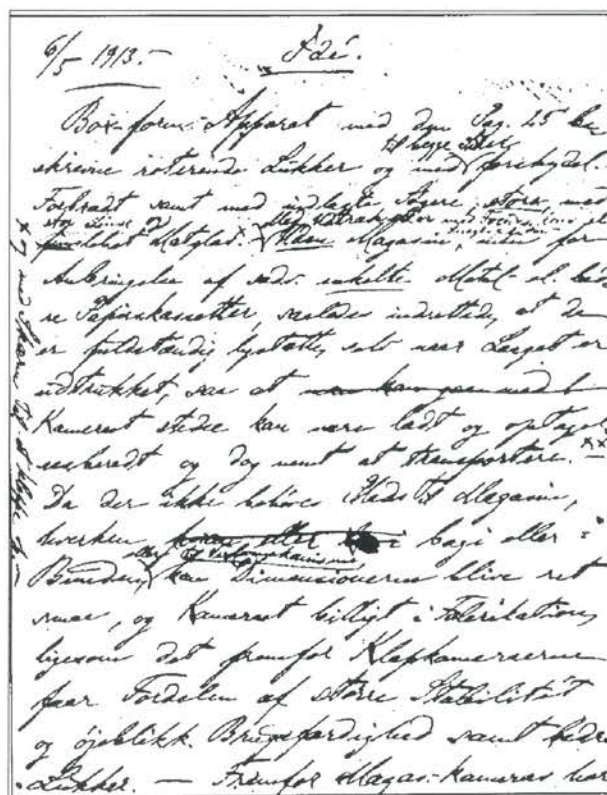 6/5 1913.- Idé.
Box-form-Apparat med den Pag. 25 be
skrevne roterende Lukker og med forskydel.
til begge Sider
Forbradt samt med indlagte Søgere, store, med
stor Linse og
Matglas. Uden Magasin, men for
Anbringelse af sædv. enkelte Metal- el. bed
re Papirskassetter, saaledes indrettede, at de
er fuldstændig lystætte, selv naar Laaget er
udtrukket, saa at
Kameraet stedse kan være ladt og optagel
sesberedt og dog nemt at transportere. xx
Da der ikke behøves Plads til Magasin,
hverken bagi eller i
Bunden, kan Dimensionerne blive ret
smaa, og Kameraet billigt i Fabrikation,
ligesom det fremfor Klapkameraerne
faar Fordelen af større Stabilitet
og øjeblikk. Brugsfærdighed samt bedre
Lukker. — Fremfor Magas.-kameras har